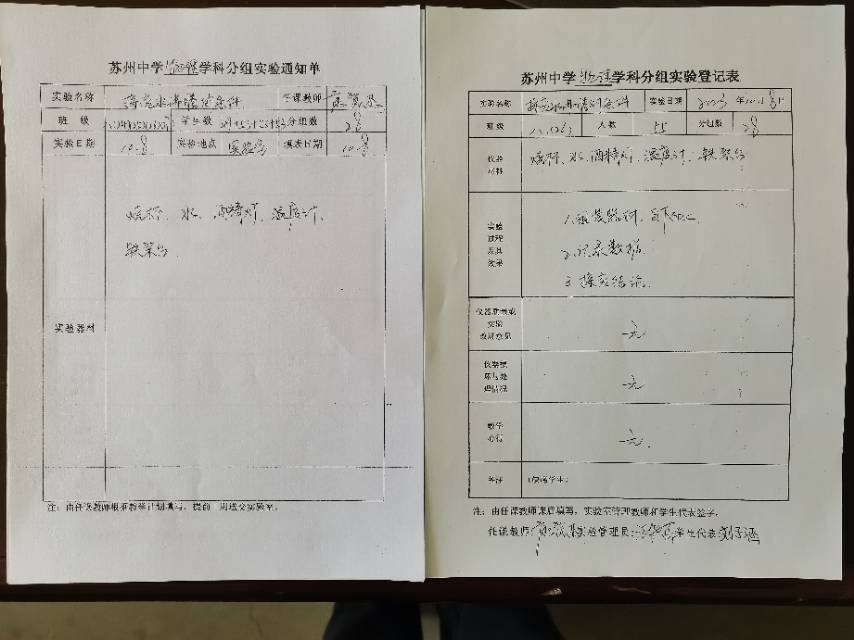 苏州中学物理学科分组实验通知单
实验名称 探究水沸腾时条件 任课教师
班 级 学生数 分组数 28
实验日期 10.8 实验地点 实验室 填表日期 10.8
烧杯、水、酒精灯、温度计、
铁架台
实验器材
注：由任课教师根据教学计划填写，提前一周送交实验室。
苏州中学物理学科分组实验登记表
实验名称 实验日期 2023 年10月8日
班级 人数 55 分组数 28
仪器
材料
烧杯、水、酒精灯、温度计、铁架台
实验
过程
及其
效果
1.组装器材，自下而上
2.记录数据
3.探究结论
仪器装载或
实验
改进意见
无
仪器损
坏与处
理情况
无
教学
心得
无
备注 （缺席学生）
注：由任课教师课后填写，实验室管理教师和学生代表签字。
任课教师： 实验管理员： 学生代表